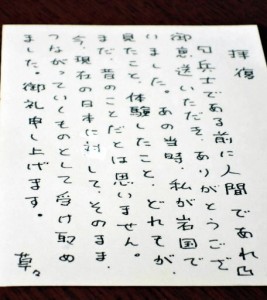 拝復
「兵士である前に人間であれ」
御恵送いただき、ありがとうござ
いました。あの当時、私が岩国で
見たこと、体験したこと、どれてが
まだ、昔のことだとは思いません。
今、現在の日本に対して、そのまま
つながっていくものとして受け取め
ました。御礼申し上げます。
草々